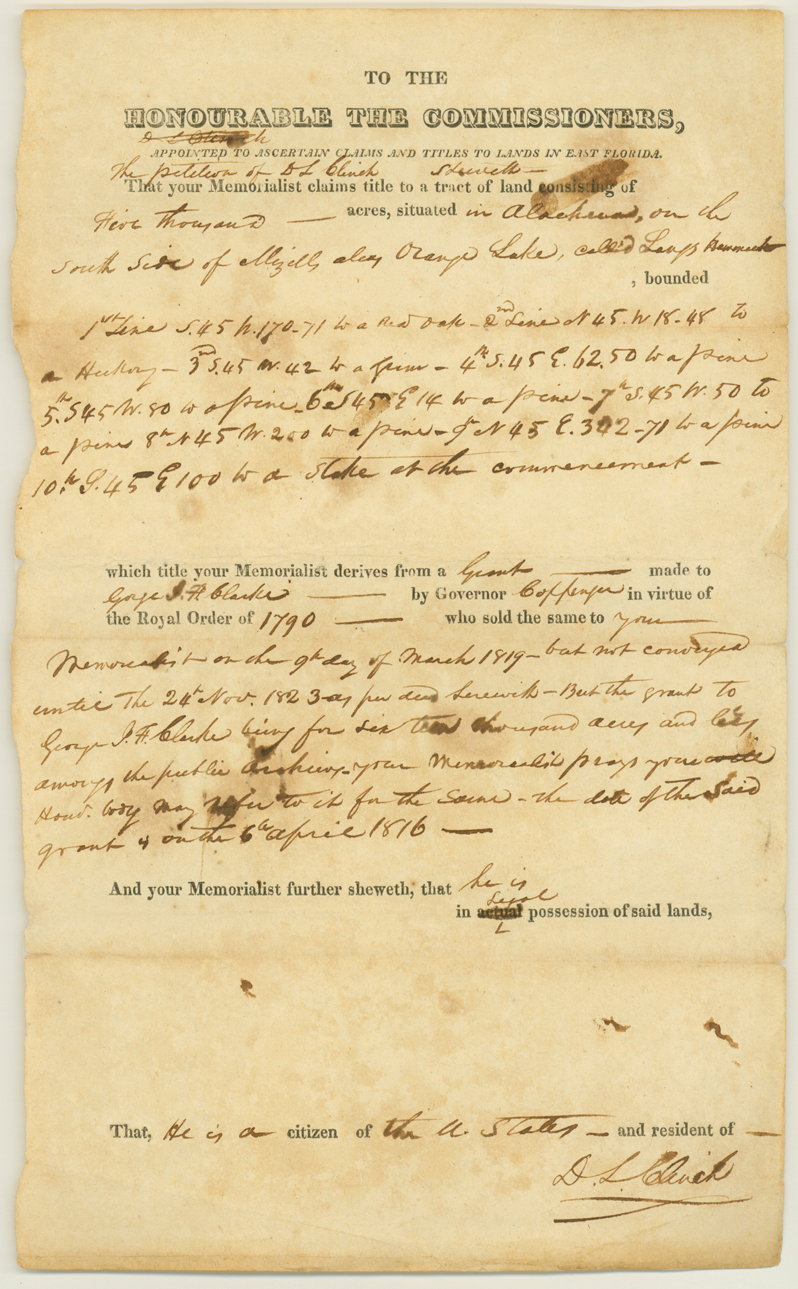 TO THE
HONOURABLE THE COMMISSIONERS,
D L Clinch
APPOINTED TO ASCERTAIN CLAIMS AND TITLES TO LANDS IN EAST FLORIDA.
The petition of D L Clinch Sheweth —
That your Memorialist claims title to a tract of land consisting of
Five thousand — acres, situated in Alachua, on the
South Side of Mizells alias Orange Lake, called Langs Hammock
, bounded
1st Line S. 45 W. 170-71 to a Red Oak - 2nd Line N 45. W 18-48 to
a Hickory - 3rd S. 45 W. 42 to a pine - 4th S. 45 E. 62.50 to a pine
5th. S 45 W. 80 to a pine - 6th S 45 E 14 to a pine - 7th S. 45 W. 50 to
a pine 8th N 45 W. 200 to a pine - 9th N 45 E. 342-71 to a pine
10th S. 45 E 100 to a Stake at the commencement -
which title your Memorialist derives from a Grant — made to
George J. F. Clarke — by Governor Coppinger in virtue of
the Royal Order of 1790 — who sold the same to your
Memorialist on the 9th day of March 1819 - but not conveyed
until the 24th Nov. 1823 as per deed herewith - But the grant to
George J. F. Clarke being for ten thousand acres and being
amongs the public Archives - your Memorialist prays your
Hond. body may refer to it for the Same - the date of the Said
grant is on the 6th April 1816 —
And your Memorialist further sheweth, that he is
Legal
in actual possession of said lands,
That, He is a citizen of the U. States — and resident of —
D. L. Clinch